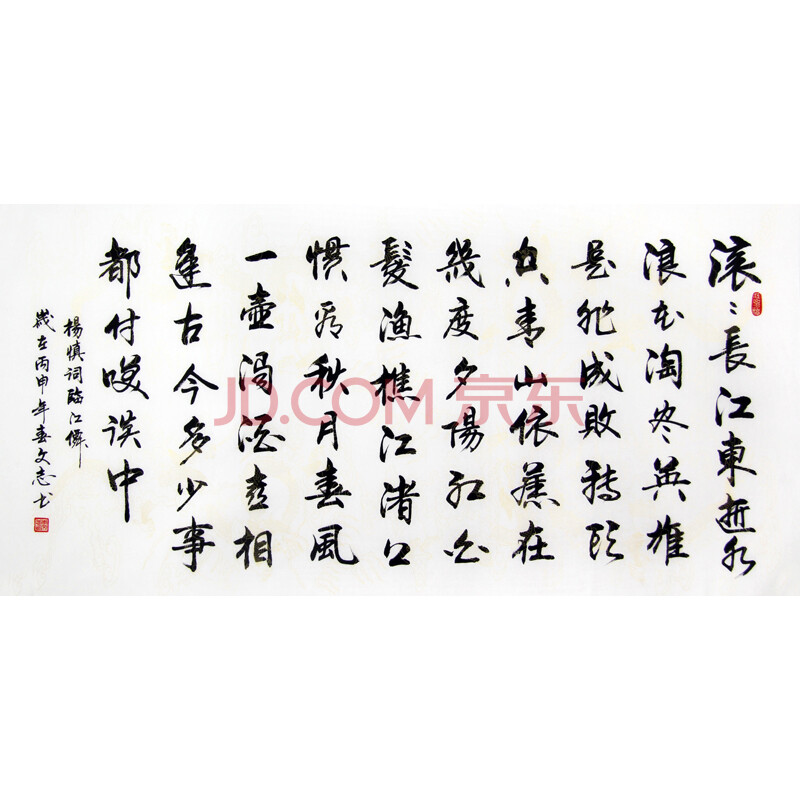 滚〻長江東逝水
浪花淘尽英雄
是非成敗轉頭
空青山依舊在
幾度夕陽红白
髮漁樵江渚口
慣看秋月春風
一壺濁酒喜相
逢古今多少事
都付咲談中
楊慎词臨江僊
歲在丙申年春文志书
JD.COM 京东